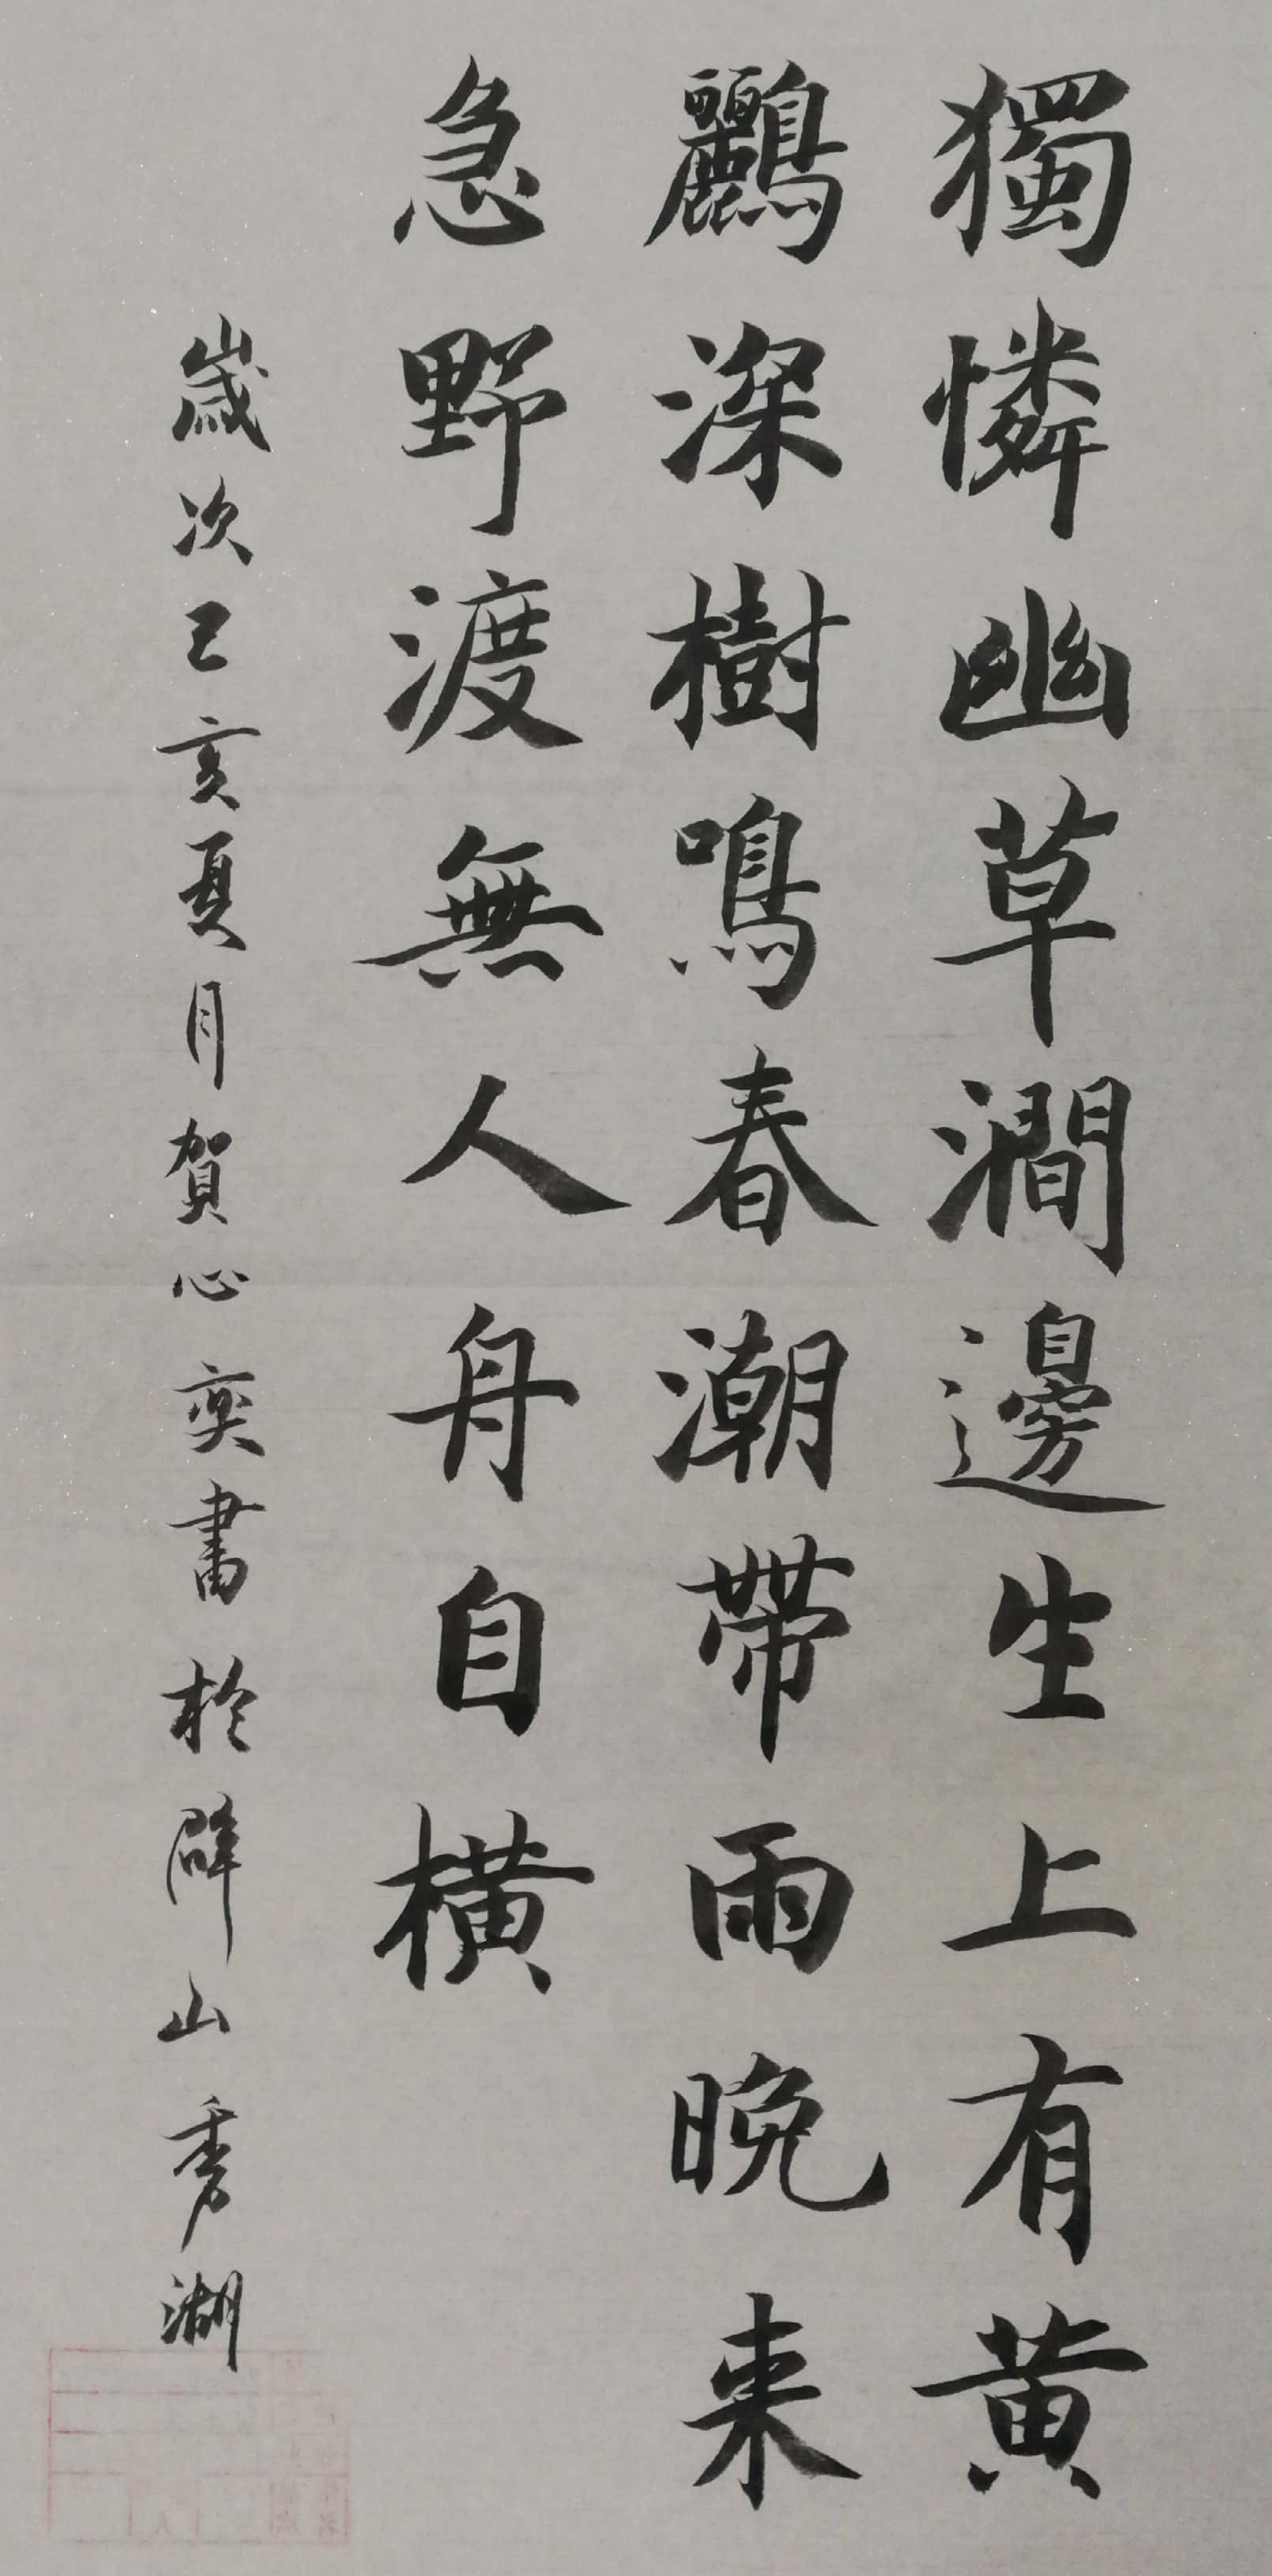 獨憐幽草澗邊生上有黃
鸝深樹鳴春潮帶雨晚来
急野渡無人舟自橫
歲次己亥夏月賀心奕書於辟山秀湖